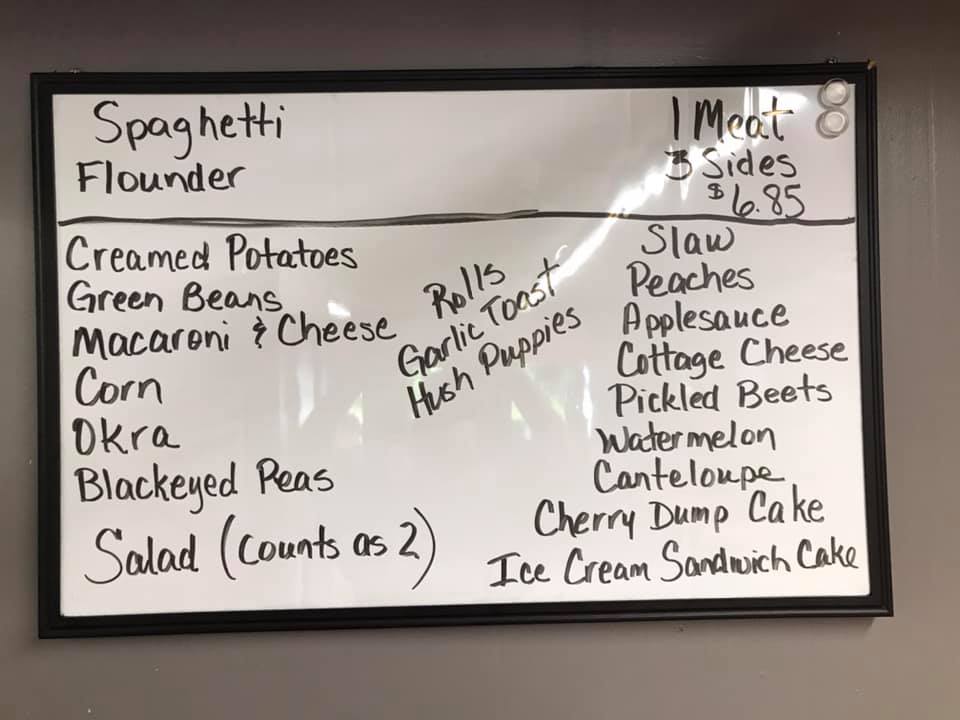 Spaghetti
Flounder
1 Meat
3 Sides
$6.85
Creamed Potatoes
Green Beans
Macaroni & Cheese
Corn
Okra
Blackeyed Peas
Salad (counts as 2)
Rolls
Garlic Toast
Hush Puppies
Slaw
Peaches
Applesauce
Cottage Cheese
Pickled Beets
Watermelon
Canteloupe
Cherry Dump Cake
Ice Cream Sandwich Cake